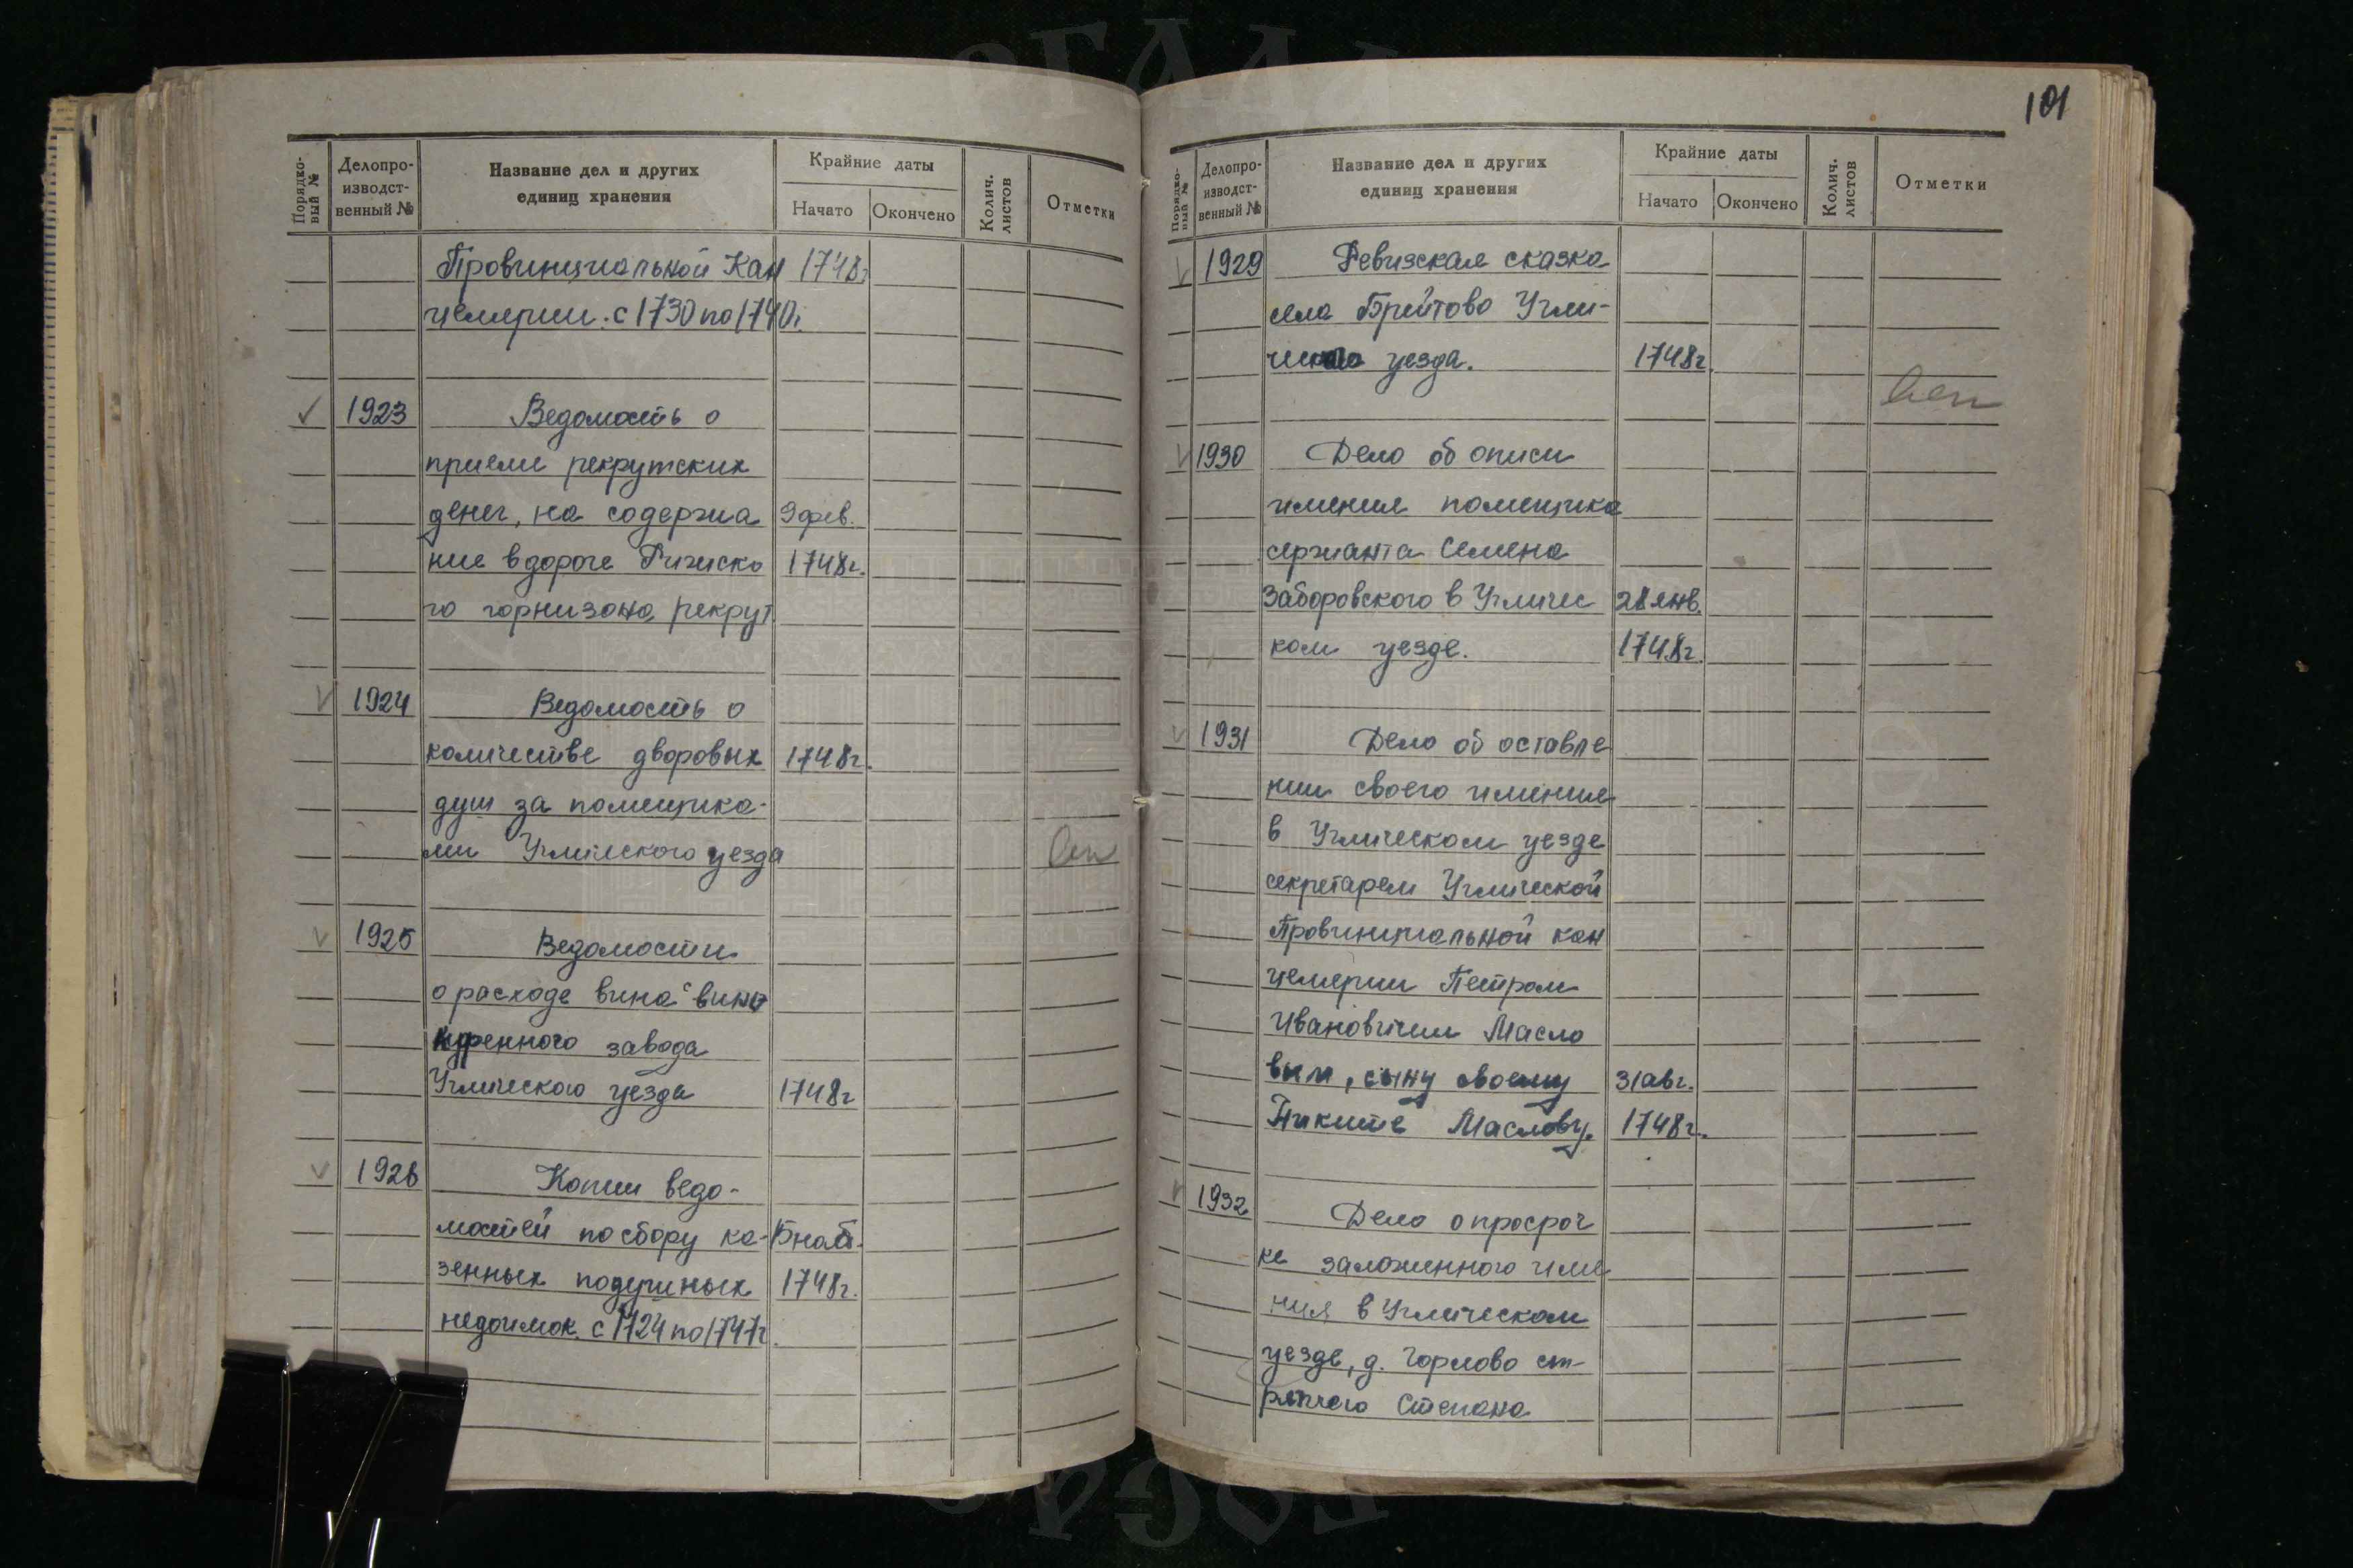 Порядко-
вый №
Делопро-
изводст-
венный №
Название дел и других
единиц хранения
Крайние даты
Начато
Окончено
Колич.
листов
Отметки
Провинциальной Кан 1748г.
целярии. с 1730 по 1740г.
✓ 1923 Ведомость о
приеме рекрутских
денег, на содержа 9 фев.
ние в дороге Рижско 1748г.
го горнизона, рекрут
V 1924 Ведомость о
количестве дворовых 1748г.
душ за помещика-
ми Угличского уезда
V 1925 Ведомости
о расходе вина с вино
куренного завода
Угличского уезда 1748г
V 1926 Копии ведо-
мостей по сбору ка-
зенных подушных 1748г.
недоимок с 1724 по 1747г.
101
Порядко-
вый №
Делопро-
изводст-
венный №
Название дел и других
единиц хранения
Крайние даты
Начато
Окончено
Колич.
листов
Отметки
V 1929 Ревизская сказка
села Брейтово Угли-
чского уезда. 1748г.
V 1930 Дело об описи
имения помещика
сержанта Семена
Заборовского в Угличес 28 янв.
ком уезде. 1748г.
V 1931 Дело об оставле
нии своего имения
в Угличском уезде
секретарем Угличской
Провинциальной кан
целярии Петром
Ивановичем Масло
вым, сыну своему 31 авг.
Никите Маслову. 1748г.
V 1932 Дело о просроч
ке заложенного име
ния в Угличском
уезде, д. Горлово ст-
ряпчего Степана